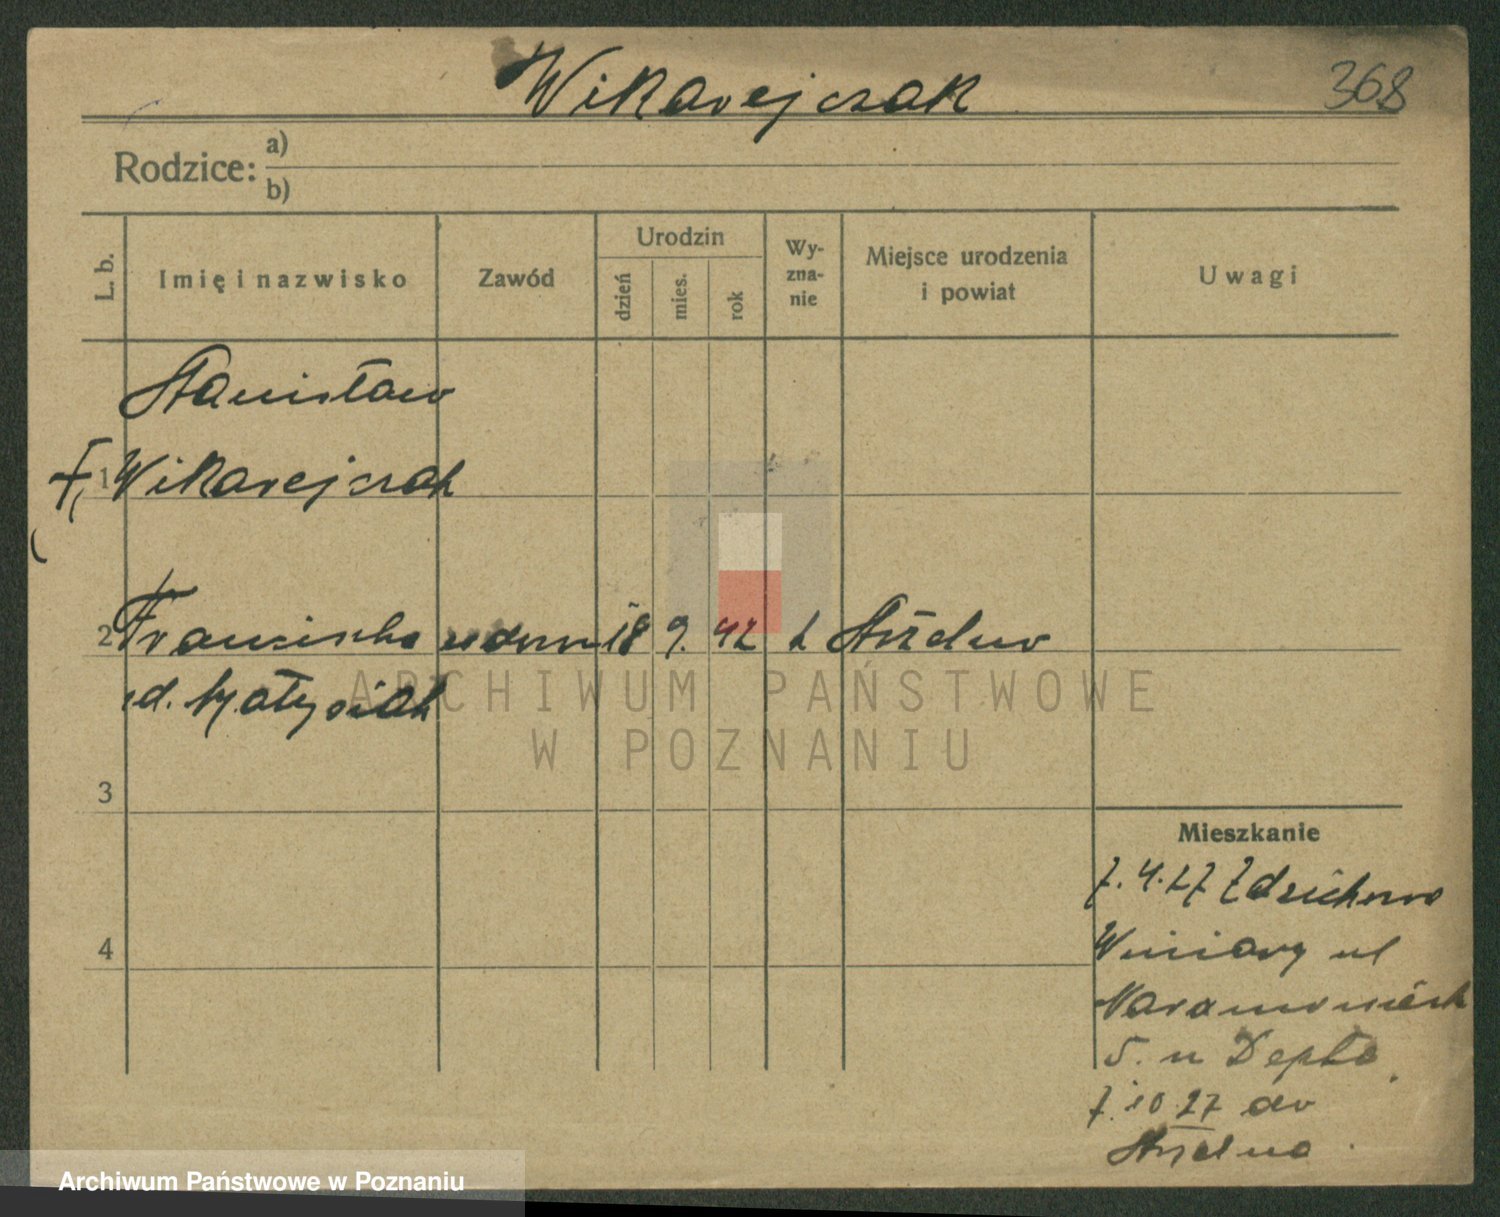 Wikarejczak
368
Rodzice: a)
b)
L. b.
Imię i nazwisko
Zawód
Urodzin
dzień
mies.
rok
Wy-
zna-
nie
Miejsce urodzenia
i powiat
Uwagi
Stanisław
1 Wikarejczak
2 Franciszka wdowa 18 9. 42 k Strzelno
3
4
Mieszkanie
7. 4. 27
Winiary ul
5. u Depta
7. 10 27 do
Strzelna
ARCHIWUM PAŃSTWOWE
W POZNANIU
Archiwum Państwowe w Poznaniu